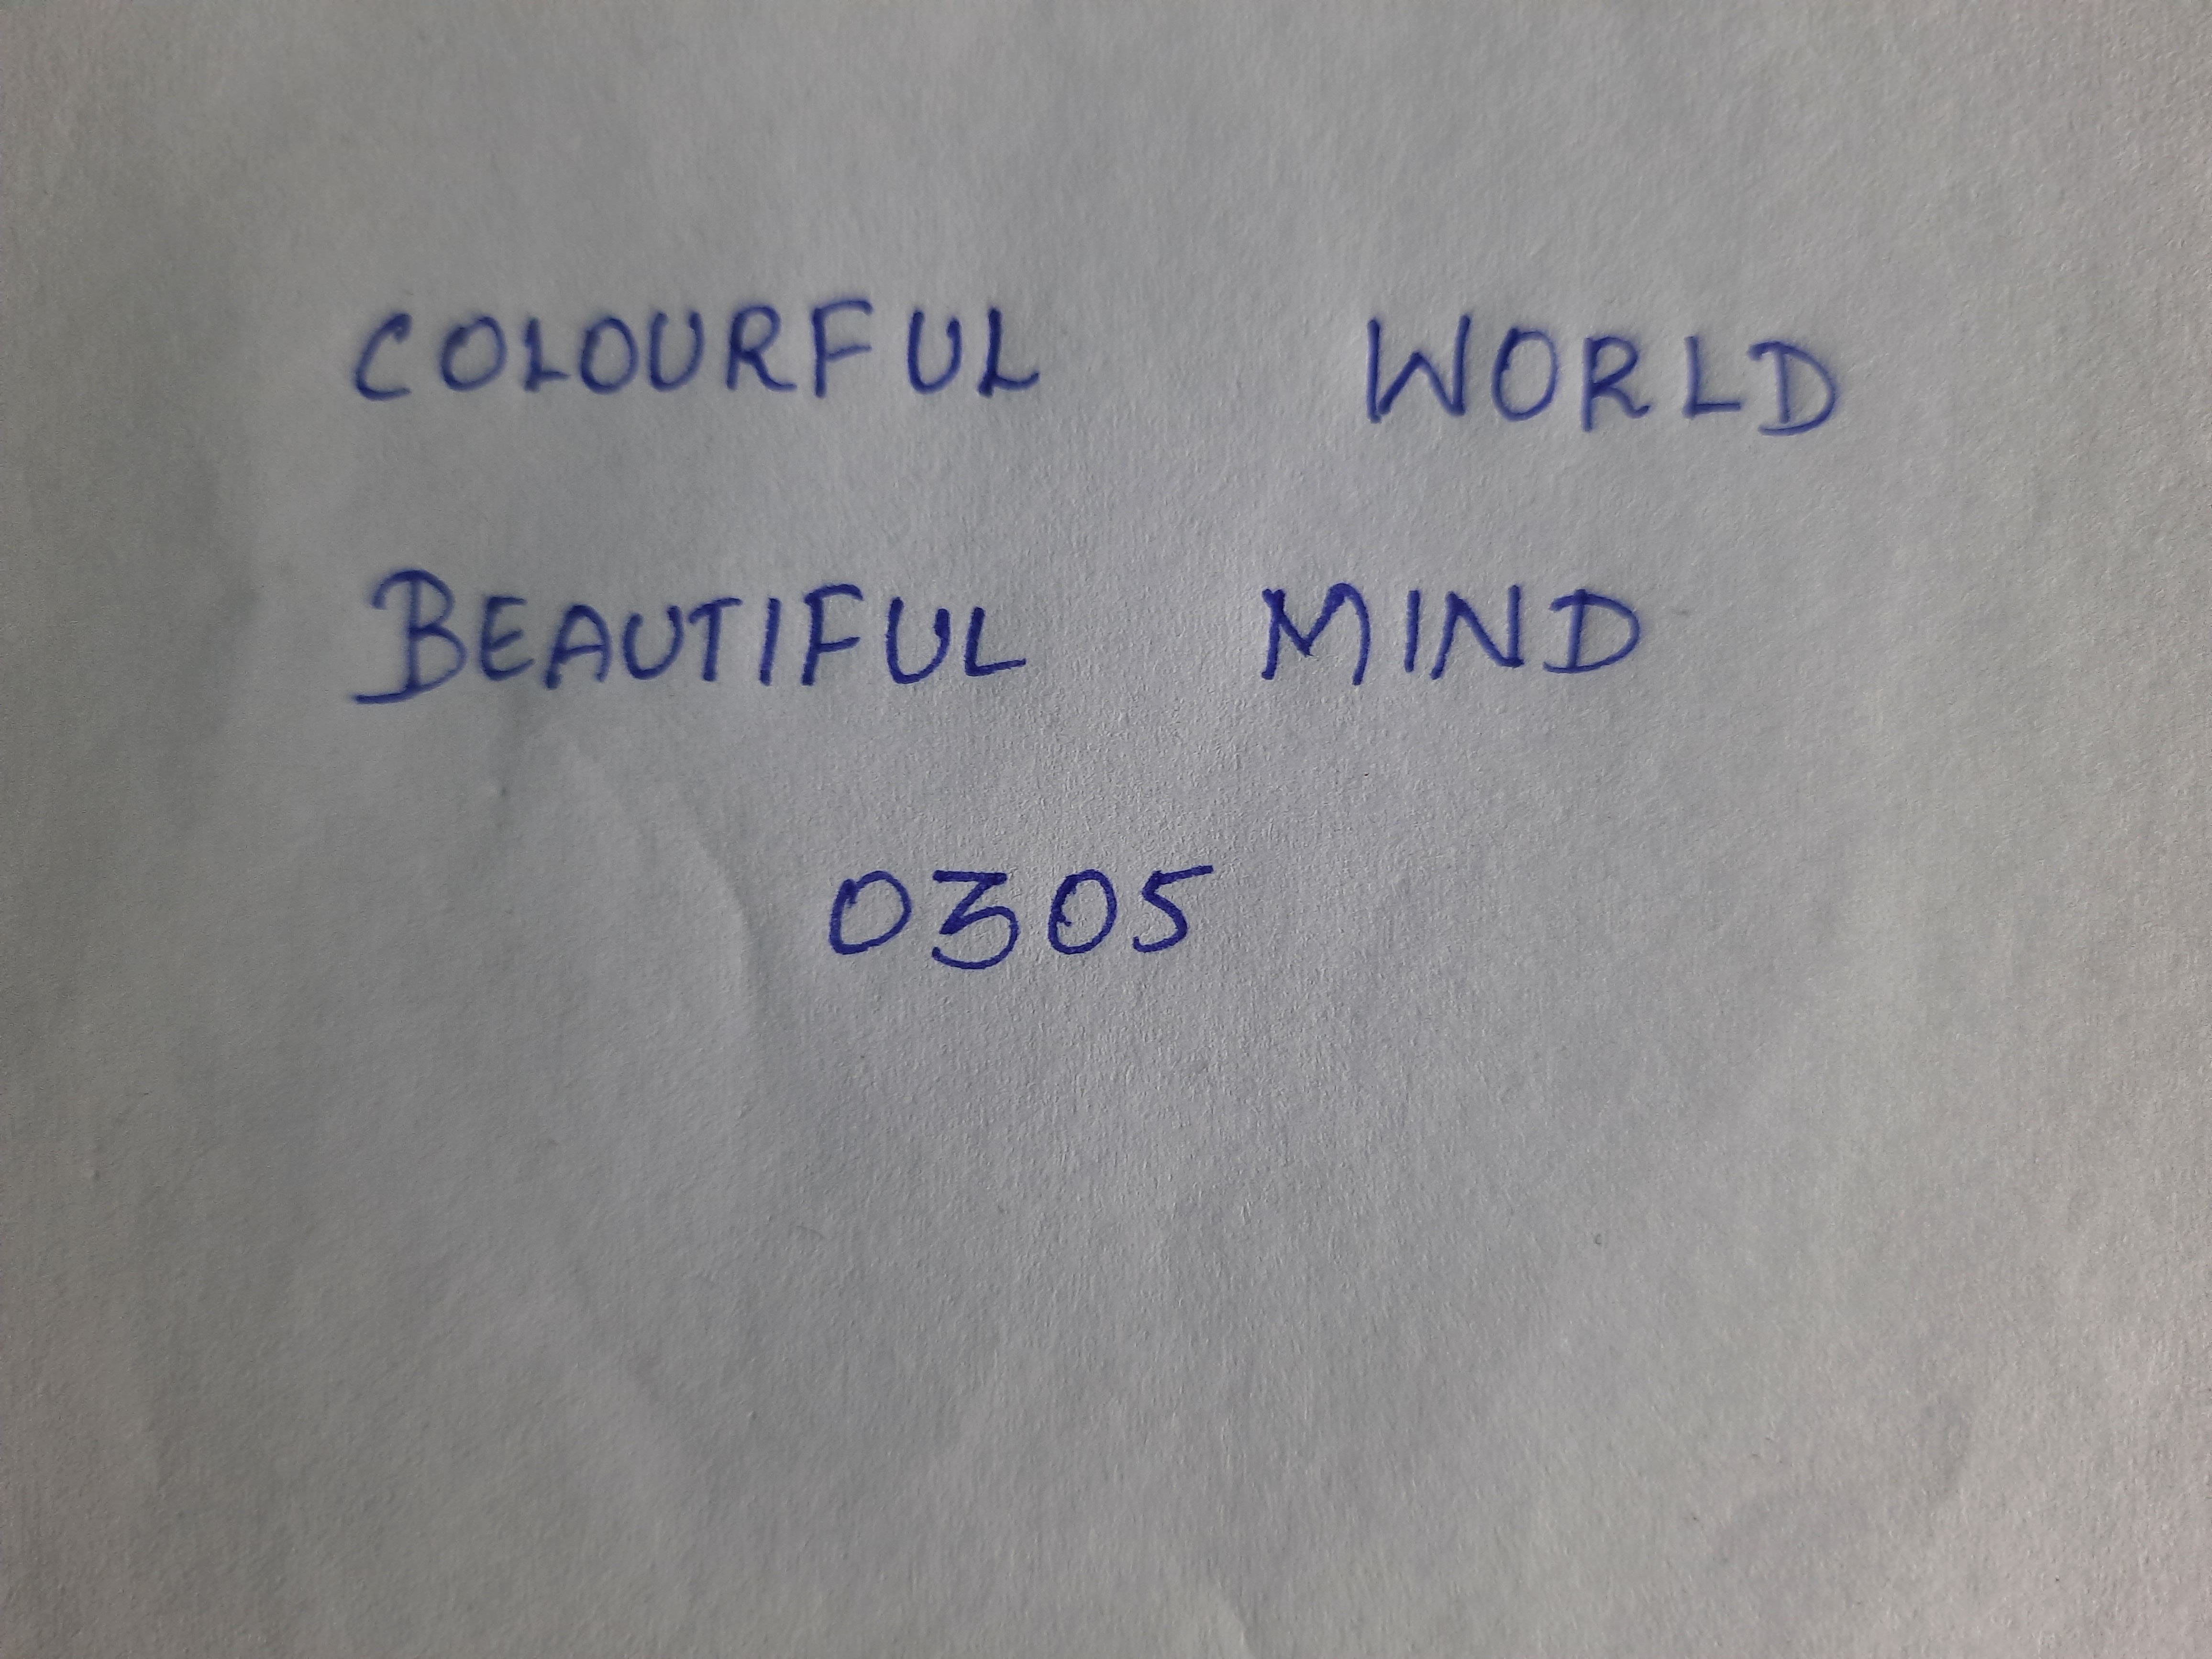 COLOURFUL WORLD
BEAUTIFUL MIND
0305